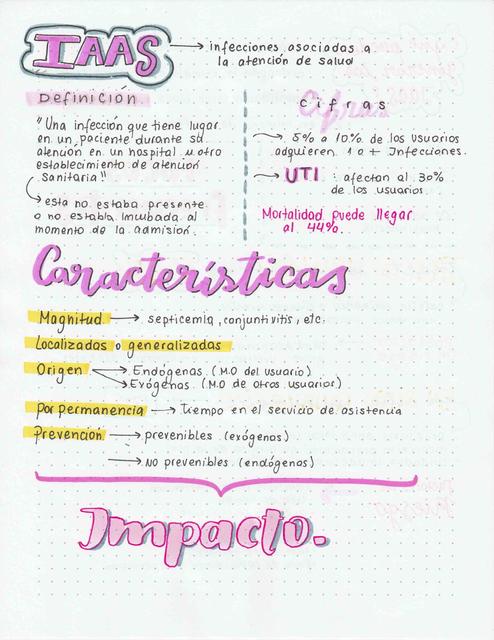 IAAS → infecciones asociadas a
la atención de salud
Definición
"Una infección que tiene lugar
en un paciente durante su
atención en un hospital u otro
establecimiento de atención
sanitaria"
→ esta no estaba presente
o no estaba incubada al
momento de la admisión.
cifras
→ 5% a 10% de los usuarios
adquieren 1 o + Infecciones.
→ UTI : afectan al 30%
de los usuarios.
Mortalidad puede llegar
al 44%.
Características
Magnitud → septicemia, conjuntivitis, etc.
Localizadas o generalizadas
Origen → Endógenas. (M.O del usuario)
→ Exógenas. (M.O de otros usuarios)
Por permanencia → Tiempo en el servicio de asistencia
Prevención → prevenibles (exógenas)
→ No prevenibles (endógenas)
Impacto.